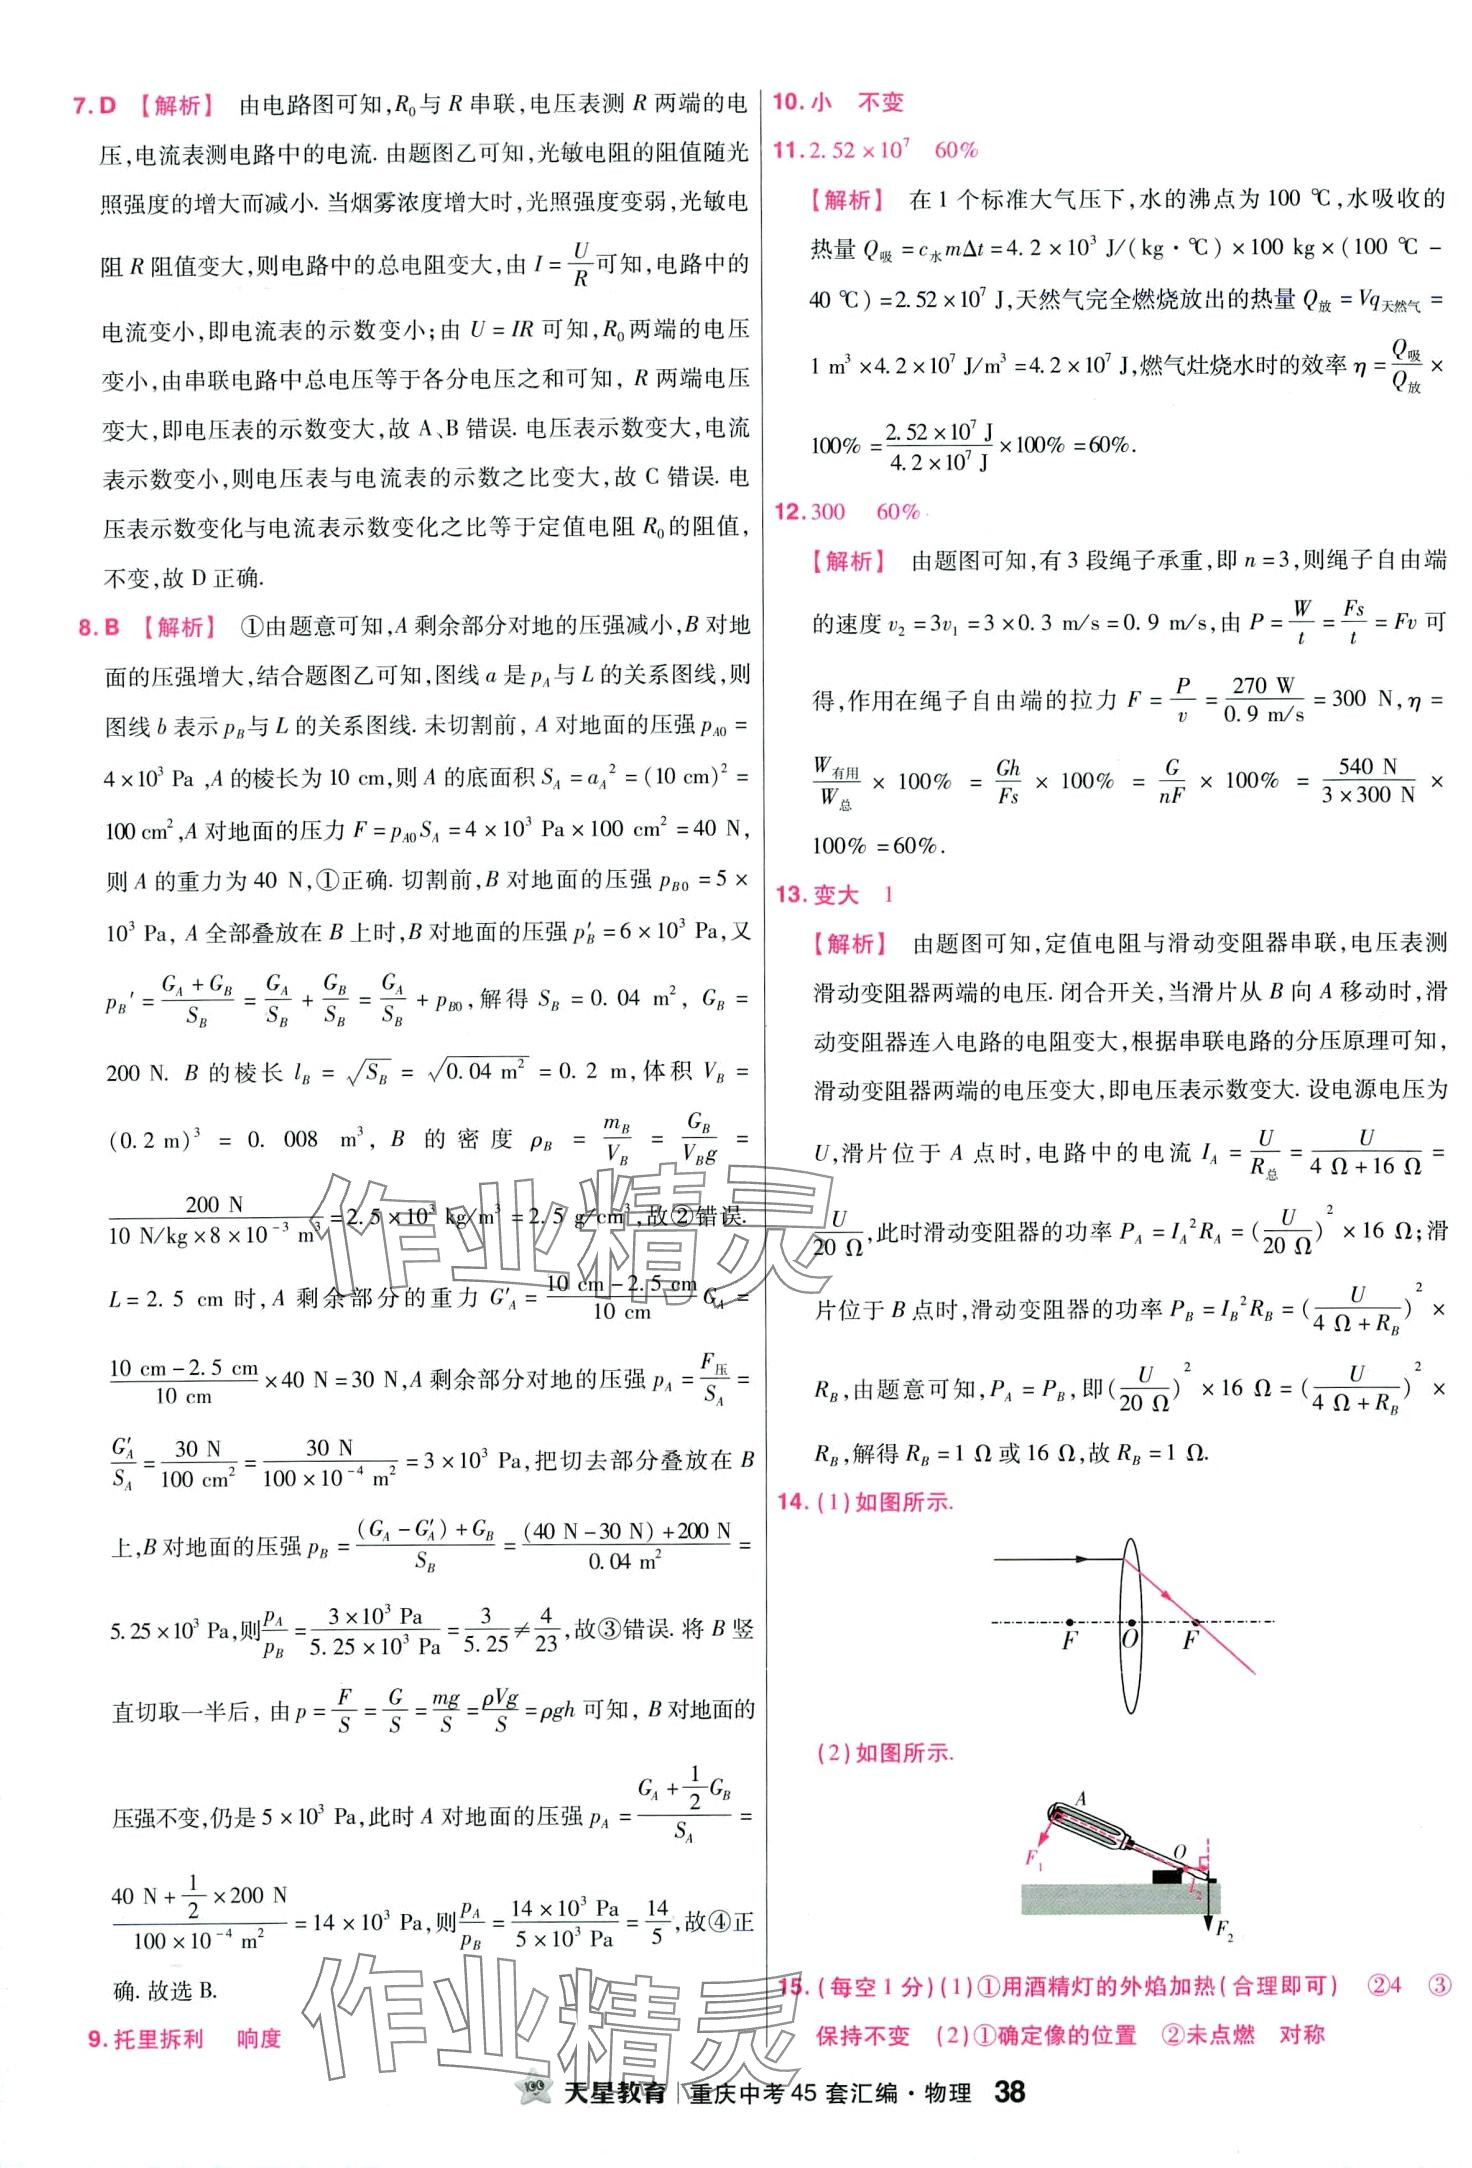 7. D 【解析】 由电路图可知,R₀与 R 串联,电压表测 R 两端的电
压,电流表测电路中的电流. 由题图乙可知,光敏电阻的阻值随光
照强度的增大而减小. 当烟雾浓度增大时,光照强度变弱,光敏电
阻 R 阻值变大,则电路中的总电阻变大,由 I = U/R 可知,电路中的
电流变小,即电流表的示数变小;由 U = IR 可知,R₀两端的电压
变小,由串联电路中总电压等于各分电压之和可知, R 两端电压
变大,即电压表的示数变大,故 A、B 错误. 电压表示数变大,电流
表示数变小,则电压表与电流表的示数之比变大,故 C 错误. 电
压表示数变化与电流表示数变化之比等于定值电阻 R₀的阻值,
不变,故 D 正确.
8. B 【解析】 ①由题意可知,A 剩余部分对地的压强减小,B 对地
面的压强增大,结合题图乙可知,图线 a 是 p_A与 L 的关系图线,则
图线 b 表示 p_B与 L 的关系图线. 未切割前, A 对地面的压强 p_A0 =
4×10³ Pa ,A 的棱长为 10 cm,则 A 的底面积 S_A = a_A² = (10 cm)² =
100 cm²,A 对地面的压力 F = p_A0 S_A = 4×10³ Pa×100 cm² = 40 N,
则 A 的重力为 40 N,①正确. 切割前,B 对地面的压强 p_B0 = 5×
10³ Pa, A 全部叠放在 B 上时,B 对地面的压强 p′_B = 6×10³ Pa,又
p_B′ = (G_A + G_B)/S_B = G_A/S_B + G_B/S_B = G_A/S_B + p_B0,解得 S_B = 0. 04 m², G_B =
200 N. B 的棱长 l_B = √S_B = √(0. 04 m²) = 0. 2 m,体积 V_B =
(0. 2 m)³ = 0. 008 m³, B 的密度 ρ_B = m_B/V_B = G_B/(V_B g) =
200 N/(10 N/kg×8×10⁻³ m³) = 2. 5×10³ kg/m³ = 2. 5 g/cm³,故②错误.
L = 2. 5 cm 时,A 剩余部分的重力 G′_A = (10 cm-2. 5 cm)/(10 cm) G_A =
(10 cm-2. 5 cm)/(10 cm) ×40 N = 30 N,A 剩余部分对地的压强 p_A = F压/S_A =
G′_A/S_A = 30 N/(100 cm²) = 30 N/(100×10⁻⁴ m²) = 3×10³ Pa,把切去部分叠放在 B
上,B 对地面的压强 p_B = ((G_A - G′_A) + G_B)/S_B = ((40 N-30 N)+200 N)/(0. 04 m²) =
5. 25×10³ Pa,则 p_A/p_B = (3×10³ Pa)/(5. 25×10³ Pa) = 3/5. 25 ≠ 4/23,故③错误. 将 B 竖
直切取一半后, 由 p = F/S = G/S = mg/S = ρVg/S = ρgh 可知, B 对地面的
压强不变,仍是 5×10³ Pa,此时 A 对地面的压强 p_A = (G_A + 1/2 G_B)/S_A =
(40 N + 1/2 ×200 N)/(100×10⁻⁴ m²) = 14×10³ Pa,则 p_A/p_B = (14×10³ Pa)/(5×10³ Pa) = 14/5,故④正
确. 故选 B.
9. 托里拆利 响度
10. 小 不变
11. 2. 52×10⁷ 60%
【解析】 在 1 个标准大气压下,水的沸点为 100 ℃,水吸收的
热量 Q吸 = c水 mΔt = 4. 2×10³ J/(kg·℃)×100 kg×(100 ℃-
40 ℃) = 2. 52×10⁷ J,天然气完全燃烧放出的热量 Q放 = Vq天然气 =
1 m³×4. 2×10⁷ J/m³ = 4. 2×10⁷ J,燃气灶烧水时的效率 η = Q吸/Q放 ×
100% = (2. 52×10⁷ J)/(4. 2×10⁷ J) ×100% = 60%.
12. 300 60%
【解析】 由题图可知,有 3 段绳子承重,即 n = 3,则绳子自由端
的速度 v₂ = 3v₁ = 3×0. 3 m/s = 0. 9 m/s,由 P = W/t = Fs/t = Fv 可
得,作用在绳子自由端的拉力 F = P/v = 270 W/(0. 9 m/s) = 300 N,η =
W有用/W总 × 100% = Gh/Fs × 100% = G/nF × 100% = 540 N/(3×300 N) ×
100% = 60%.
13. 变大 1
【解析】 由题图可知,定值电阻与滑动变阻器串联,电压表测
滑动变阻器两端的电压. 闭合开关,当滑片从 B 向 A 移动时,滑
动变阻器连入电路的电阻变大,根据串联电路的分压原理可知,
滑动变阻器两端的电压变大,即电压表示数变大. 设电源电压为
U,滑片位于 A 点时,电路中的电流 I_A = U/R总 = U/(4 Ω+16 Ω) =
U/(20 Ω),此时滑动变阻器的功率 P_A = I_A² R_A = (U/(20 Ω))² ×16 Ω;滑
片位于 B 点时,滑动变阻器的功率 P_B = I_B² R_B = (U/(4 Ω+R_B))² ×
R_B,由题意可知,P_A = P_B,即(U/(20 Ω))² ×16 Ω = (U/(4 Ω+R_B))² ×
R_B,解得 R_B = 1 Ω 或 16 Ω,故 R_B = 1 Ω.
14. (1)如图所示.
F O F
(2)如图所示.
A
F₁
O
l₂
F₂
15. (每空 1 分)(1)①用酒精灯的外焰加热(合理即可) ②4 ③
保持不变 (2)①确定像的位置 ②未点燃 对称
作业精灵
作业精灵
天星教育 | 重庆中考 45 套汇编·物理 38